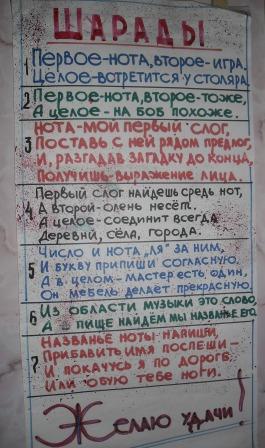 ШАРАДЫ
1 Первое-нота, второе-игра,
Целое-встретится у столяра.
2 Первое-нота, второе-тоже,
А целое-на боб похоже.
3 Нота-мой первый слог,
Поставь с ней рядом предлог,
И, разгадав загадку до конца,
Получишь-выражение лица.
4 Первый слог найдешь средь нот,
А второй-олень несёт.
А целое-соединит всегда
Деревни, сёла, города.
5 Число и нота „ля" за ним,
И букву припиши согласную.
А в целом-мастер есть один,
Он мебель делает прекрасную.
6 Из области музыки это слово,
А в пище найдём мы названье его
7 Названье ноты напиши,
Прибавить имя поспеши-
И покачусь я по дороге,
Или обую тебе ноги.
Желаю удачи!